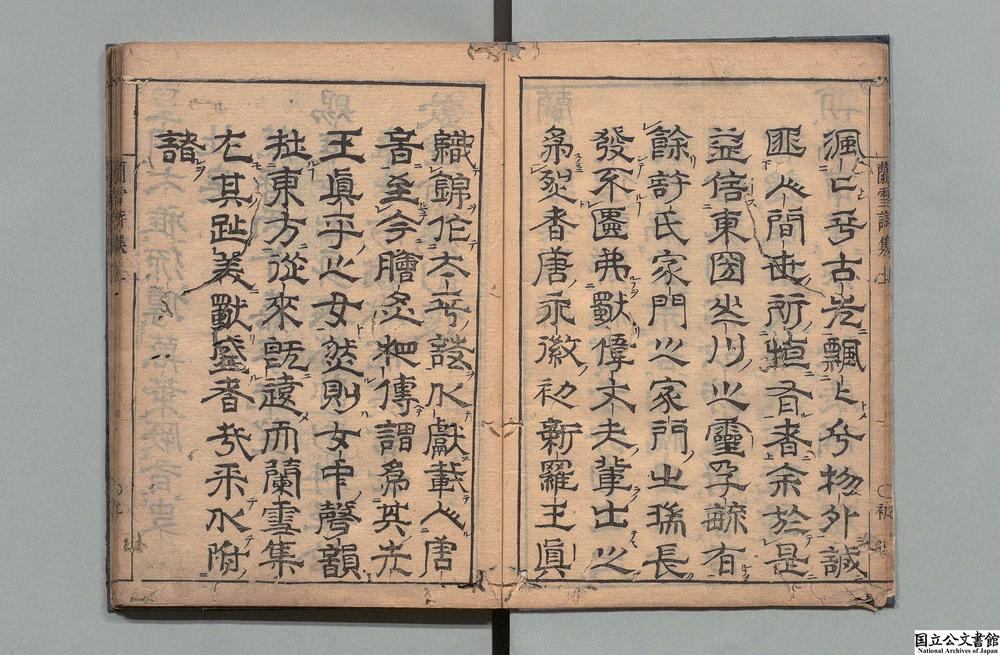 渢〻乎古先飄〻乎物外誠
匪人間世所恒有者余於是
益信東國山川之靈孕毓有
餘許氏家門之家門之瑞長
發不匱弗獨偉丈夫輩出之
爲烈者唐永徽初新羅王眞
織錦作太平詩以獻載入唐
音至今膾炙相傳謂爲其先
王眞平之女然則女中聲韻
在東方從來旣遠而蘭雪集
尤其趾美獨盛者哉采以附
諸
蘭雪詩集 上
国立公文書館
National Archives of Japan